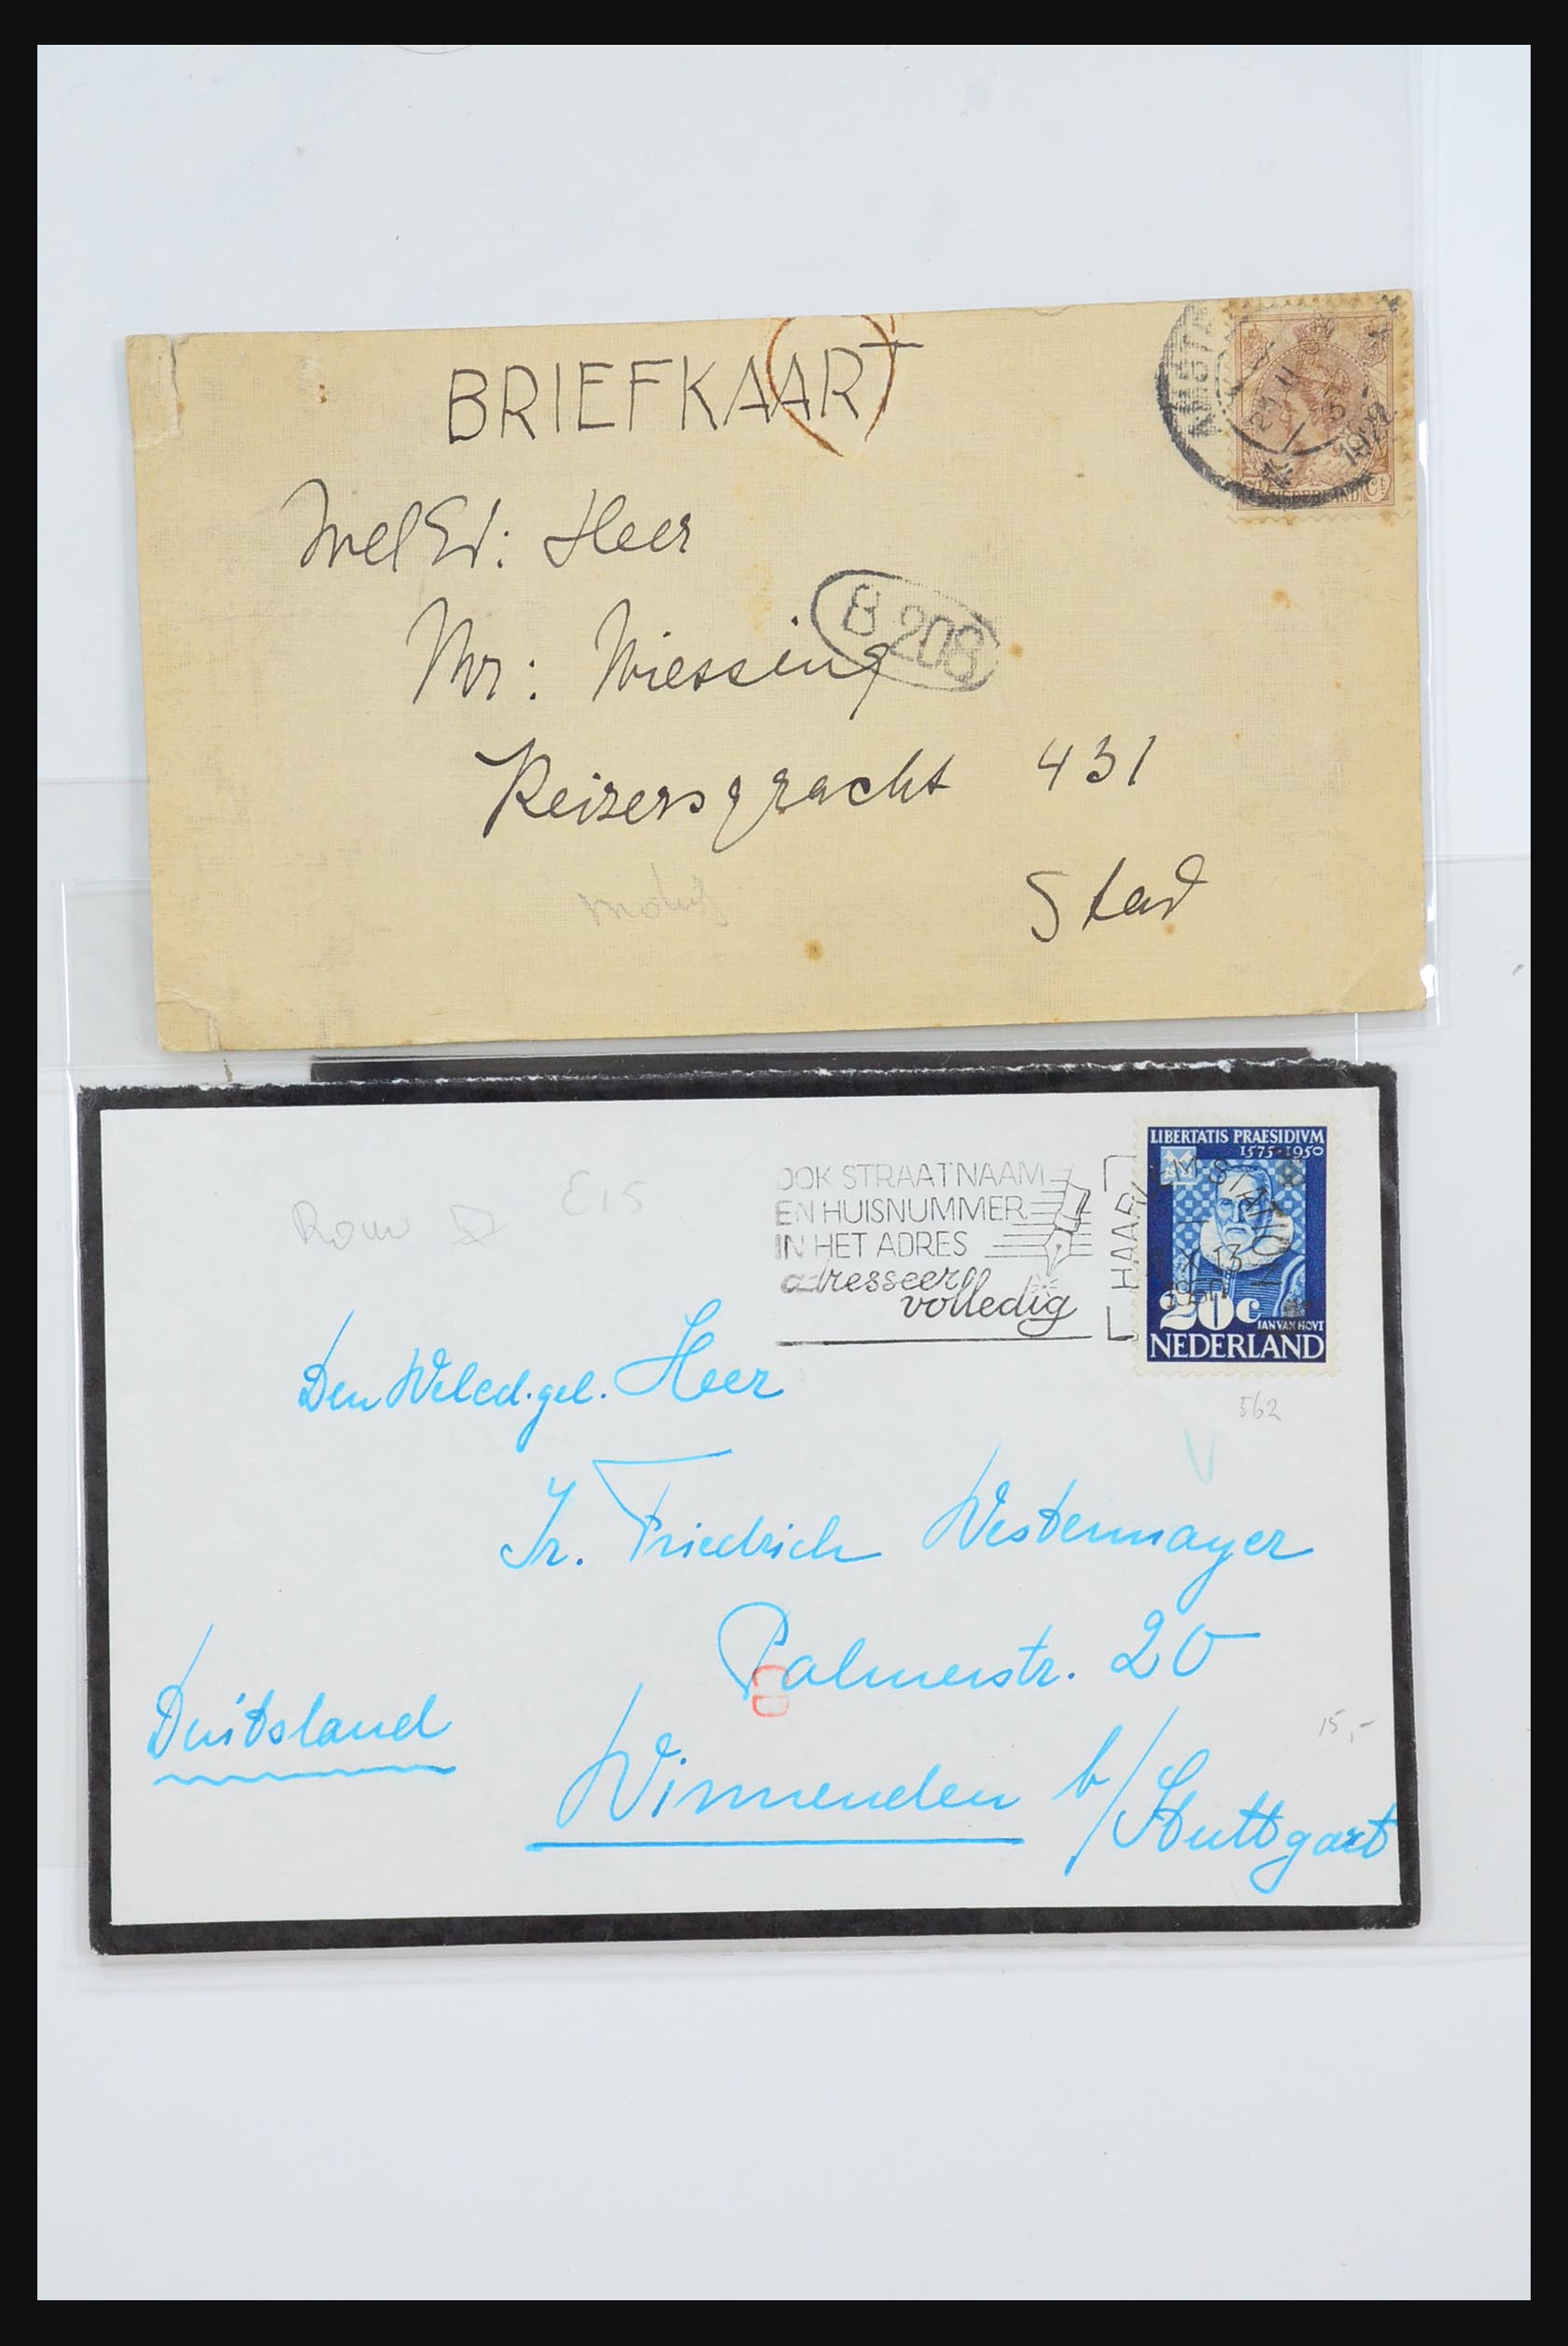 BRIEFKAART
AMST
1922
NEDERLAND Ct
WelEd: Heer
Mr: Wiessing
B 208
Keizersgracht 431
Stad
Rouw E15
OOK STRAATNAAM
EN HUISNUMMER
IN HET ADRES
adresseer
volledig
HAARLEM STATION
X 13
1950
LIBERTATIS PRAESIDIVM
1575-1950
20c
JAN VAN HOVT
NEDERLAND
562
Den Weled.gel. Heer
Ir. Friedrich Westermayer
Palmerstr. 20
Duitsland
15,-
Winnenden b/Stuttgart